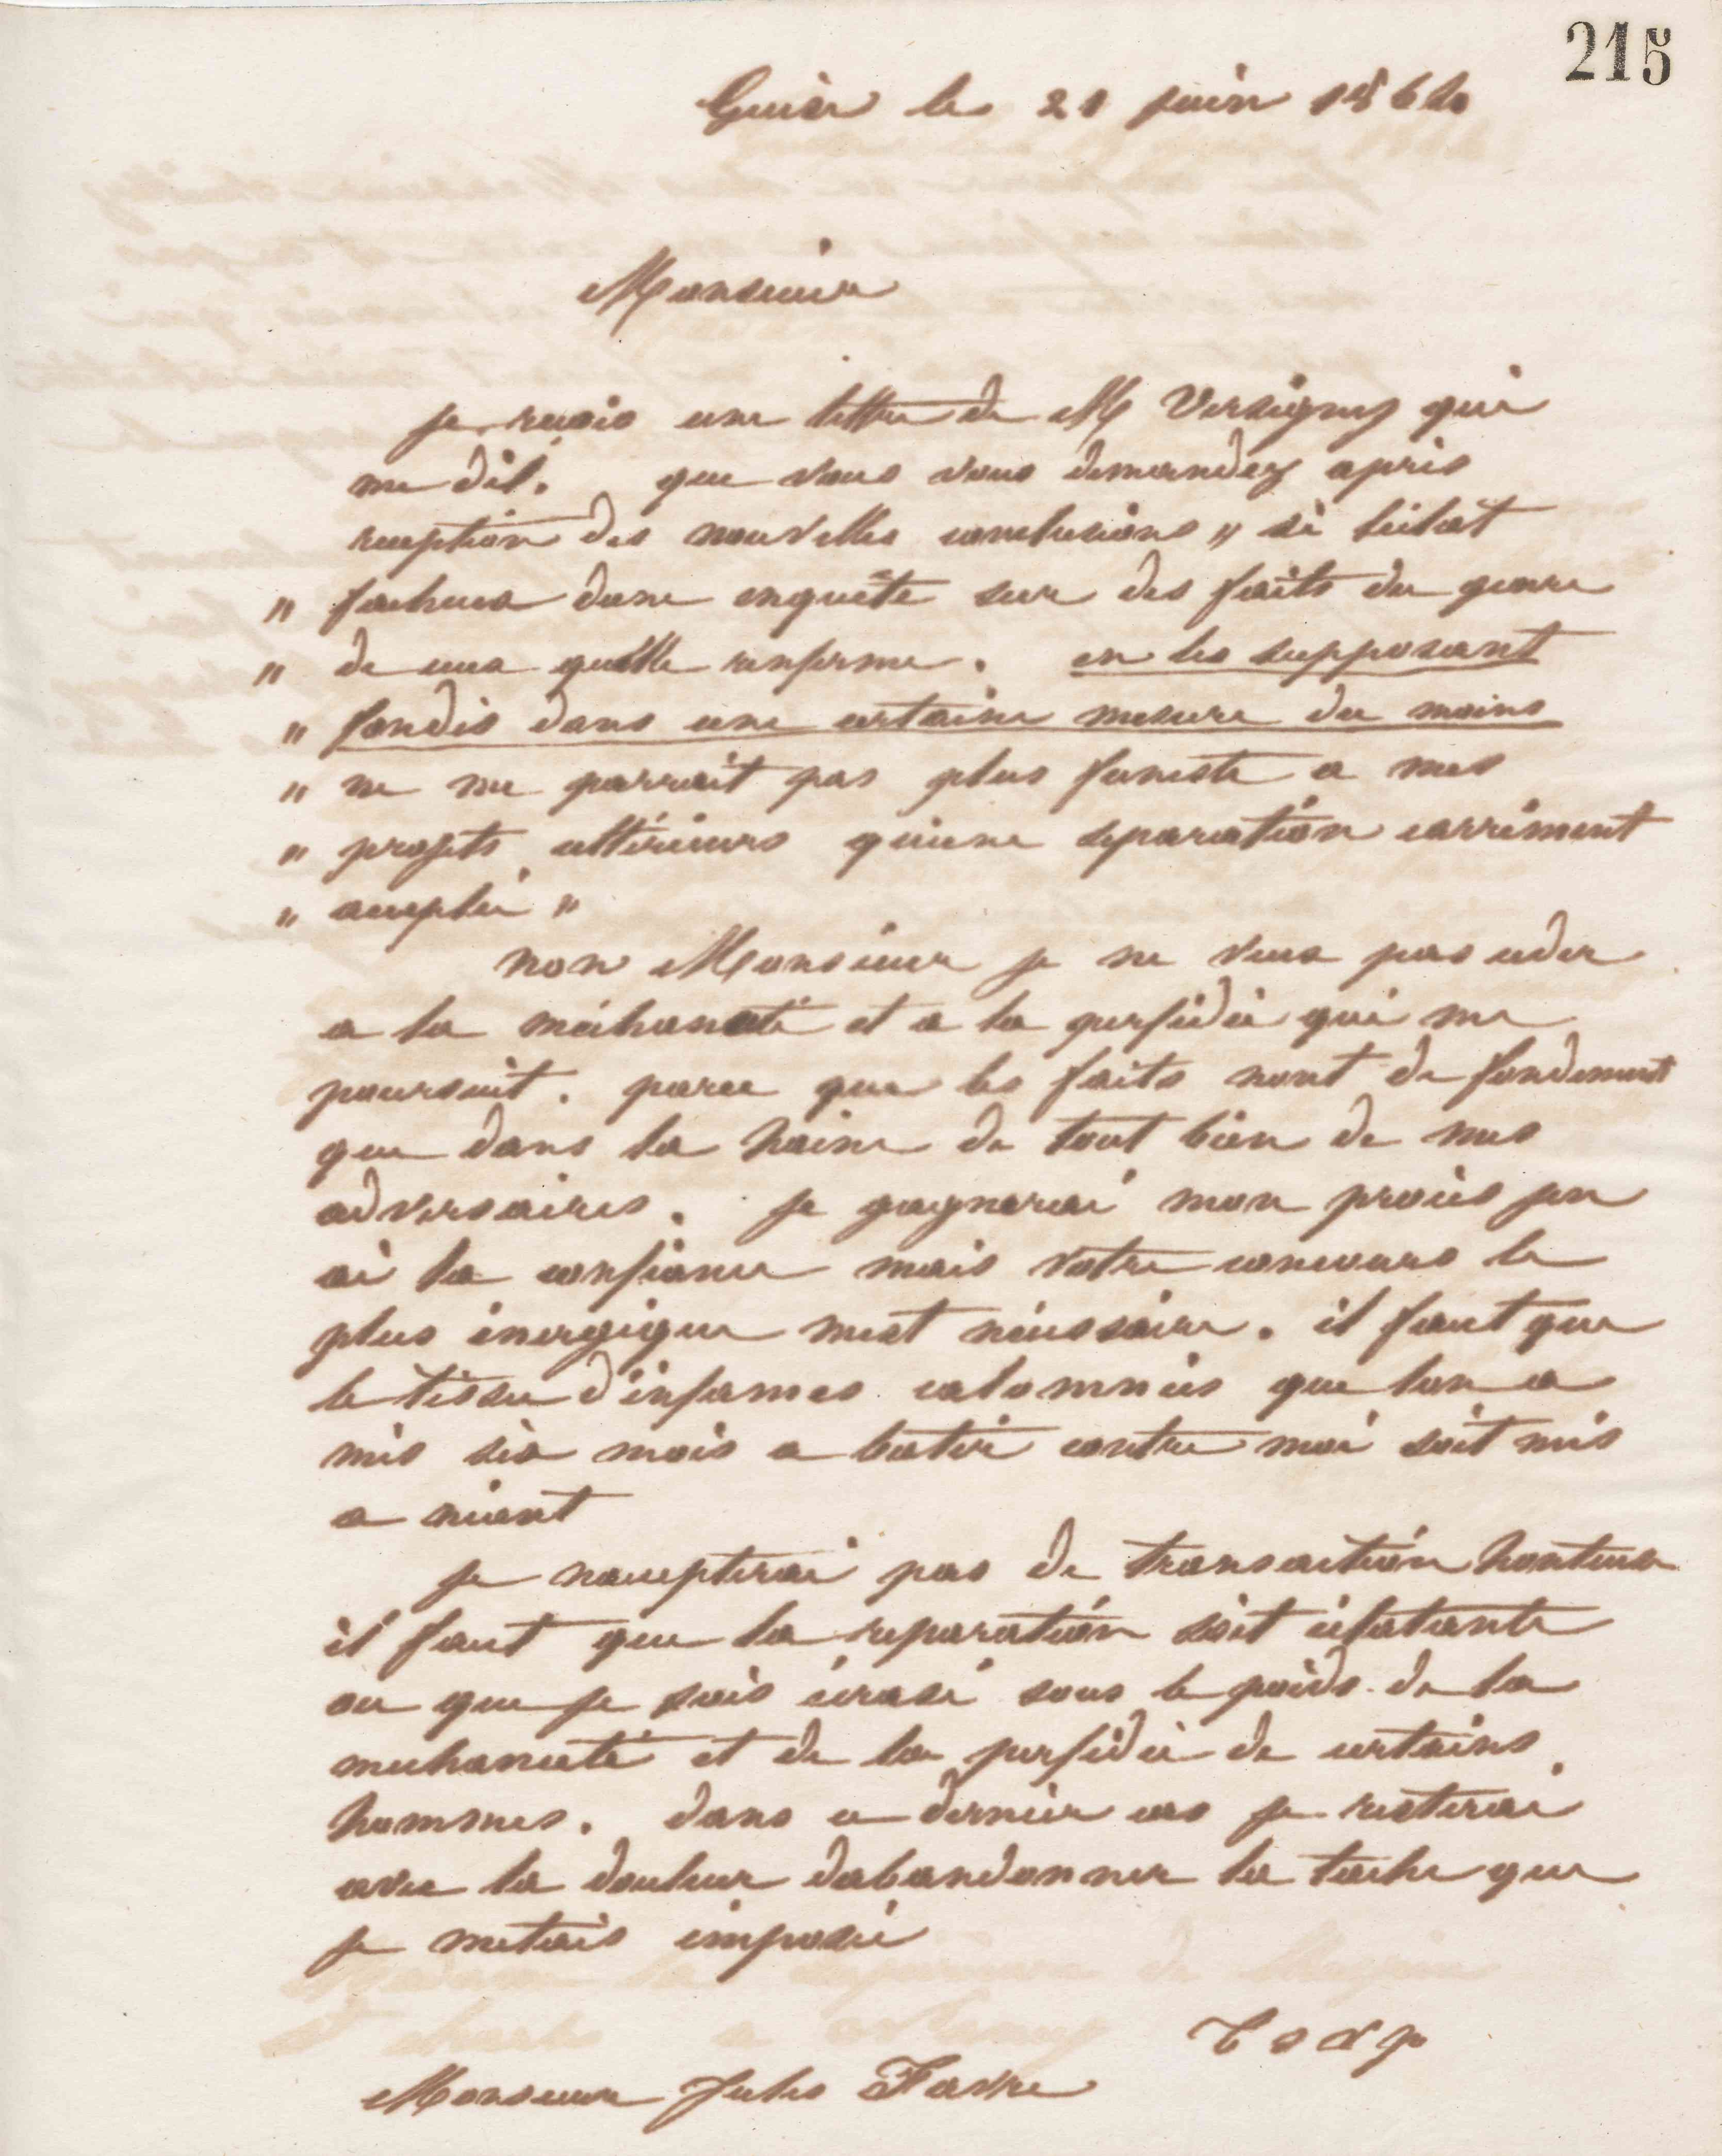 215
Guise le 21 juin 1864
Monsieur
je reçois une lettre de M Versigny qui
me dit. que vous vous demandez apres
reception des nouvelles conclusions " si leclat
" facheux dune enquête sur des faits du genre
" de ceux quelle renferme. en les supposant
" fondés dans une certaine mesure du moins
" ne me parrait pas plus funeste a mes
" projets ultérieurs quune separation carrément
" acceptée "
non Monsieur je ne veux pas ceder
a la méchanceté et a la perfidie qui me
poursuit. parce que les faits nont de fondement
que dans la haine de tout bien de mes
adversaires. je gagnerai mon procès jen
ai la confiance mais votre concours le
plus énergique mest nécessaire. il faut que
le tissu d'infames calomnies que lon a
mis six mois a batir contre moi soit mis
a néant
je naccepterai pas de transaction honteuse
il faut que la reparation soit éclatante
ou que je sois écrasé sous le poids de la
mechanceté et de la perfidie de certains
hommes. dans ce dernier cas je resterai
avec la douleur dabandonner la tache que
je metais imposée
Monsieur Jules Favre